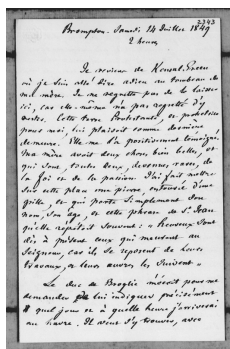 2343
Brompton. Samedi 14 Juillet 1849
2 heures
Je reviens de Kensal-Green
où je suis allé dire adieu au tombeau de
ma mère. Je ne regrette pas de la laisser
ici, car elle-même n'a pas regretté d'y
rester. Cette terre Protestante, et protectrice
pour moi, lui plaisait comme dernière
demeure. Elle me l'a positivement témoigné.
Ma mère avait deux choses bien belles, et
qui sont, toutes deux, devenues rares, de
la foi et de la passion. J'ai fait mettre
sur cette place une pierre, entourée d'une
grille, et qui porte simplement son
nom, son âge, et cette phrase de St Jean
qu'elle répétait souvent: "Heureux sont
dès à présent ceux qui meurent au
Seigneur, car ils se reposent de leurs
travaux, et leurs œuvres les suivent."
Le duc de Broglie m'écrit pour me
demander de lui indiquer précisément
quel jour et à quelle heure j'arriverai
au havre. Il vient s'y trouver, avec